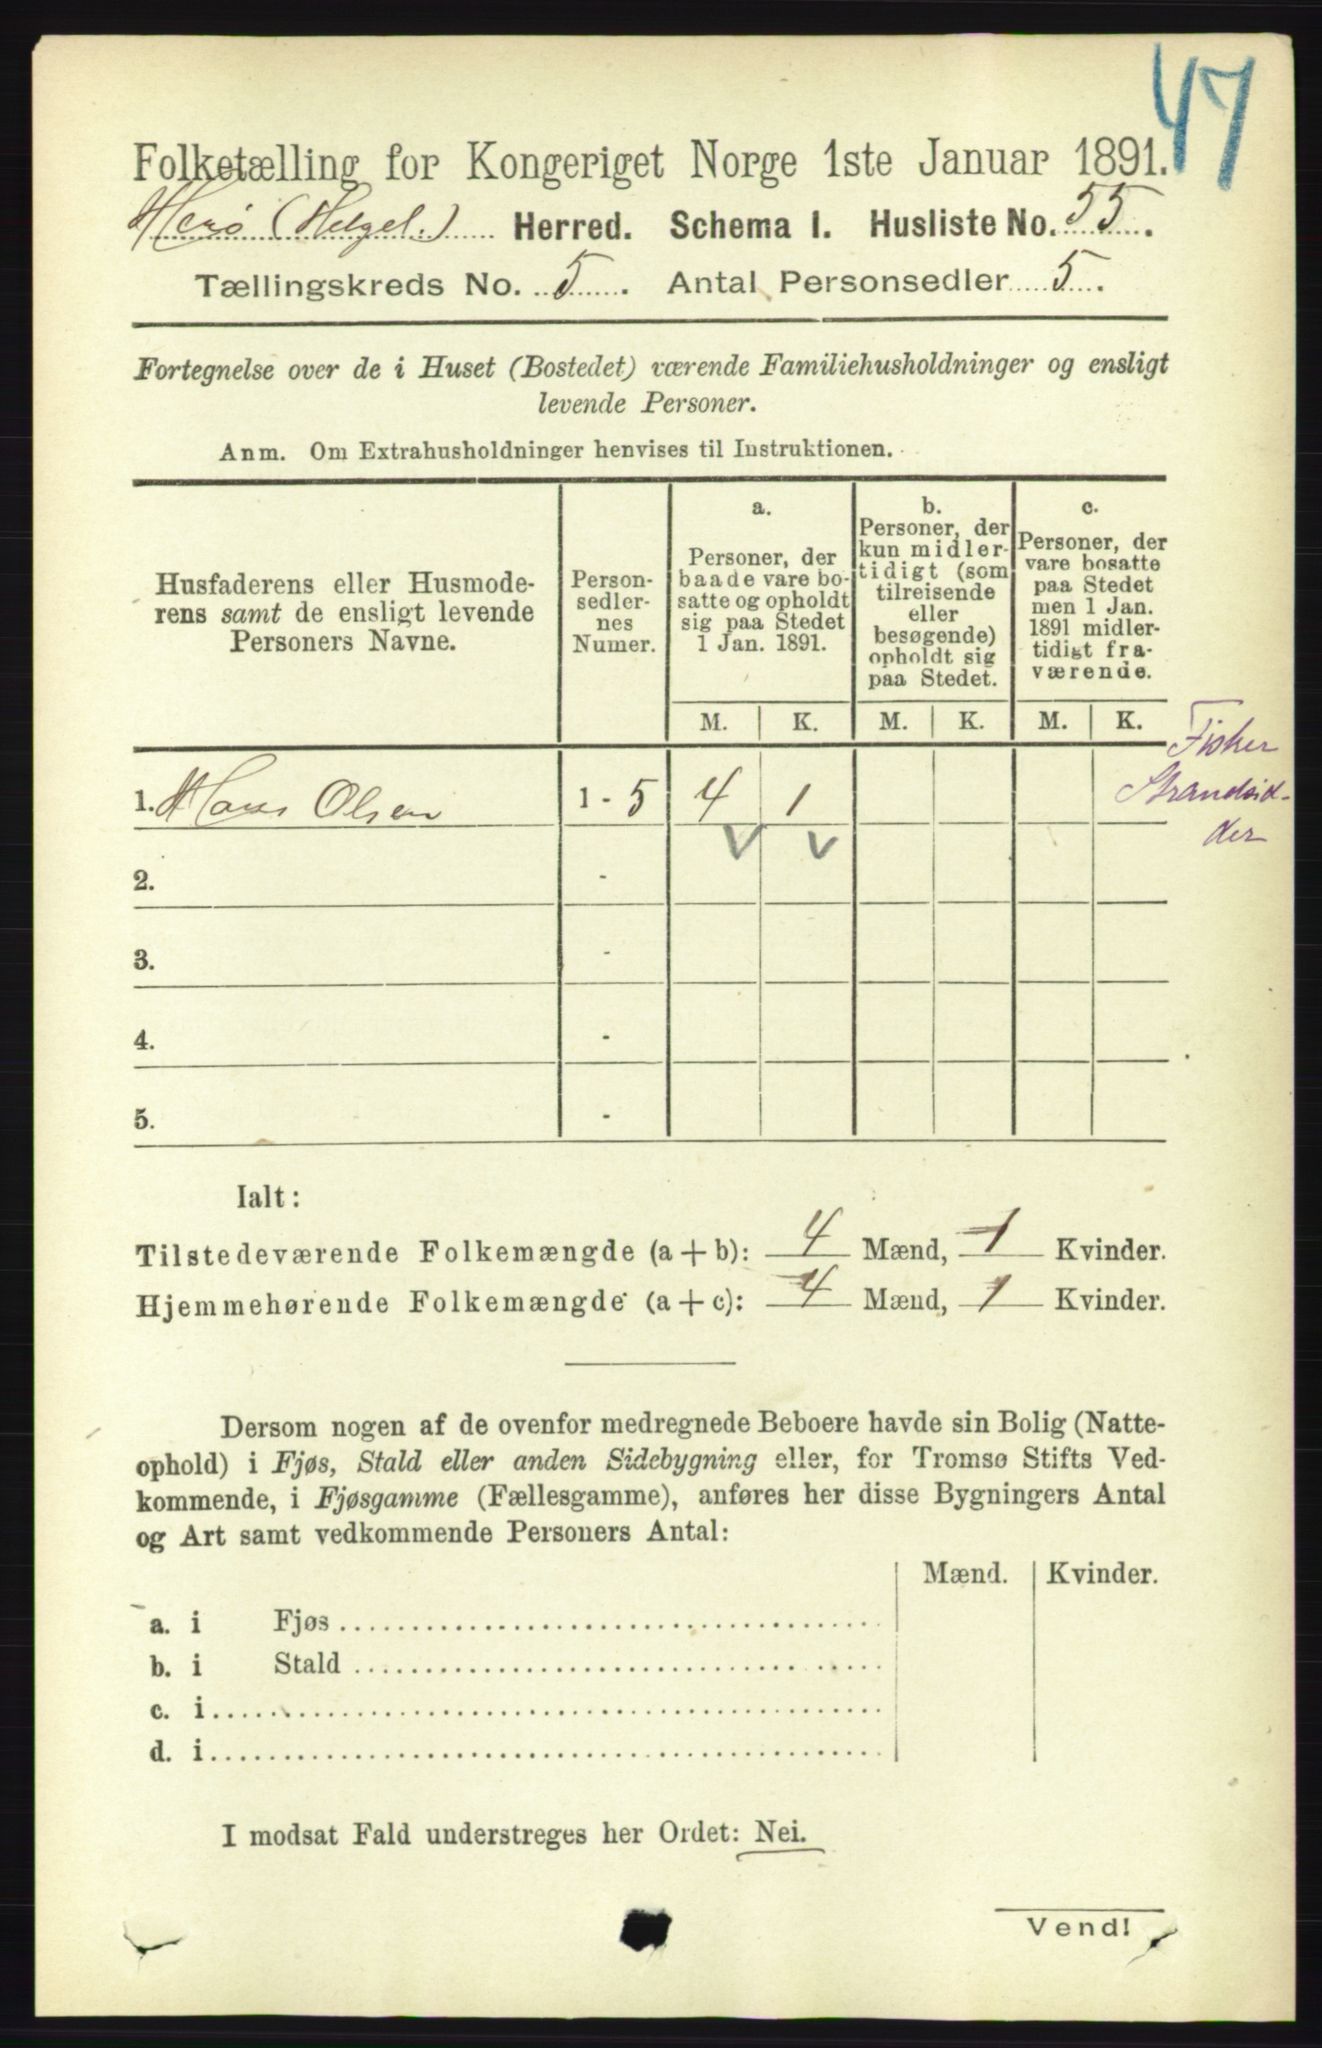 47
Folketælling for Kongeriget Norge 1ste Januar 1891.
Herø (Helgel.) Herred. Schema I. Husliste No. 55.
Tællingskreds No. 5. Antal Personsedler 5.
Fortegnelse over de i Huset (Bostedet) værende Familiehusholdninger og ensligt
levende Personer.
Anm. Om Extrahusholdninger henvises til Instruktionen.
Husfaderens eller Husmode-
rens samt de ensligt levende
Personers Navne.
Person-
sedler-
nes
Numer.
a.
Personer, der
baade vare bo-
satte og opholdt
sig paa Stedet
1 Jan. 1891.
b.
Personer, der
kun midler-
tidigt (som
tilreisende
eller
besøgende)
opholdt sig
paa Stedet.
c.
Personer, der
vare bosatte
paa Stedet
men 1 Jan.
1891 midler-
tidigt fra-
værende.
M. K. M. K. M. K.
1. Hans Olsen 1 - 5 4 1
Fisker
Strandsid-
der
2. -
3. -
4. -
5. -
Ialt:
Tilstedeværende Folkemængde (a + b): 4 Mænd, 1 Kvinder.
Hjemmehørende Folkemængde (a + c): 4 Mænd, 1 Kvinder.
Dersom nogen af de ovenfor medregnede Beboere havde sin Bolig (Natte-
ophold) i Fjøs, Stald eller anden Sidebygning eller, for Tromsø Stifts Ved-
kommende, i Fjøsgamme (Fællesgamme), anføres her disse Bygningers Antal
og Art samt vedkommende Personers Antal:
Mænd. Kvinder.
a. i Fjøs
b. i Stald
c. i
d. i
I modsat Fald understreges her Ordet: Nei.
Vend!